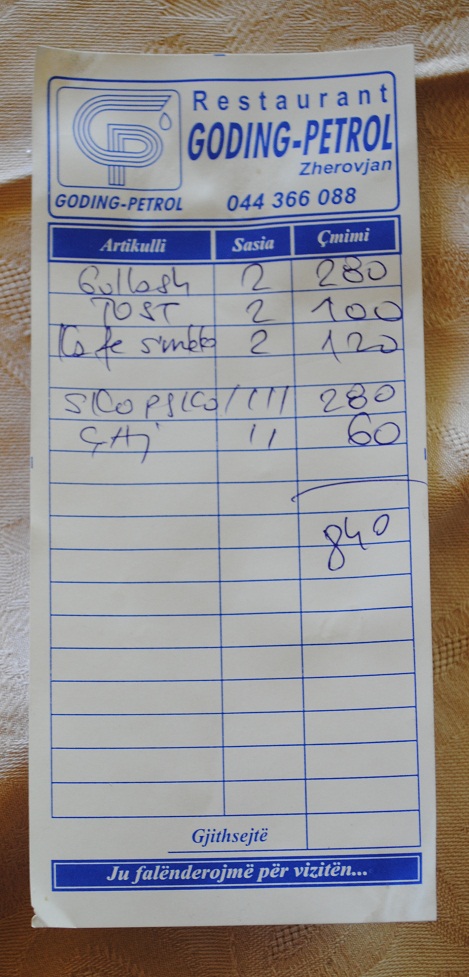 Restaurant
GODING-PETROL
Zherovjan
GODING-PETROL 044 366 088
Artikulli Sasia Çmimi
Gullash 2 280
TOST 2 100
Kafe 2 120
280
ÇAj 11 60
840
Gjithsejtë
Ju falënderojmë për vizitën...